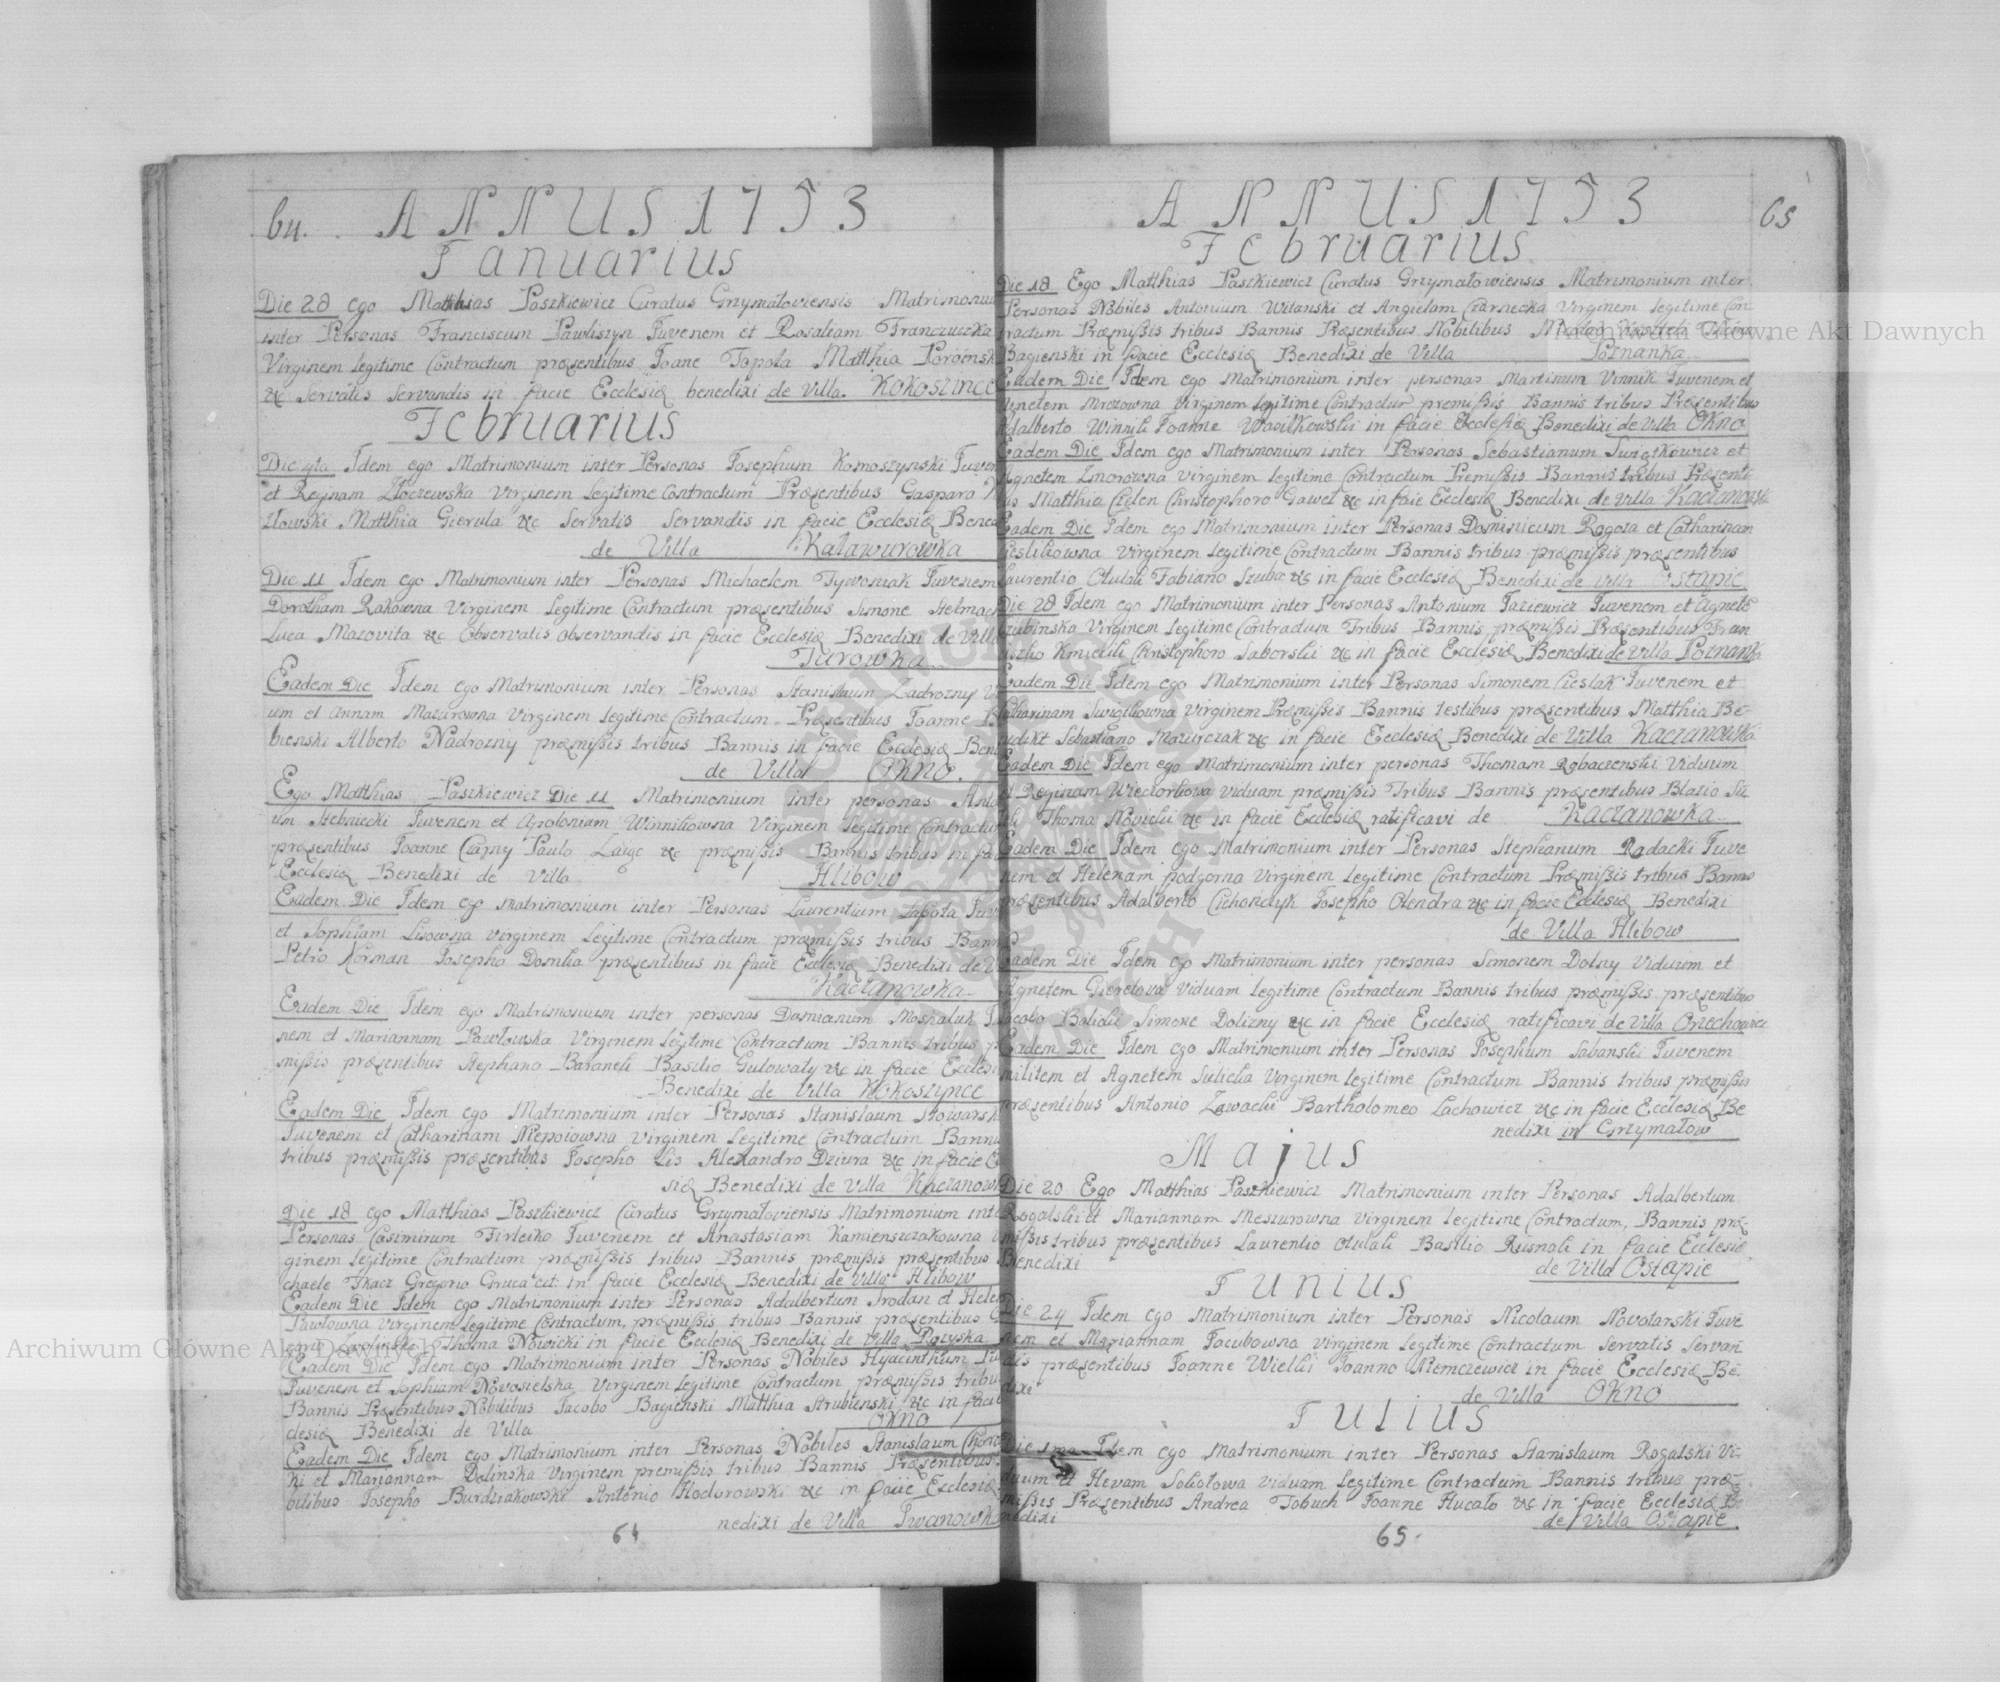 64. ANNUS 1753
Januarius
Die 28 ego Matthias Paszkiewicz Curatus Grzymałoviensis Matrimonium
inter Personas Franciscum Pawliszyn Juvenem et Rosaliam Franczuczka
Virginem legitime Contractum præsentibus Joane Topola Matthia
&c Servatis Servandis in facie Ecclesiæ benedixi de Villa. KOKOSZINCE
Februarius
Die Idem ego Matrimonium inter Personas Josephum Komoszynski
et Reginam Virginem legitime Contractum Præsentibus Gasparo
Matthia Gierula &c Servatis Servandis in facie Ecclesiæ
de Villa Kaławurowka
Die 11 Idem ego Matrimonium inter Personas Michaelem Tywoniak Juvenem
Dorotham Rakowna Virginem legitime Contractum præsentibus Simone
Luca Mazovita &c Observatis observandis in facie Ecclesiæ Benedixi de Villa
Turowka
Eadem Die Idem ego Matrimonium inter Personas Stanislaum Zadrozny
um et Annam Mazurowna Virginem legitime Contractum Præsentibus Joanne
bienski Alberto Nadrozny præmissis tribus Bannis in facie Ecclesiæ
de Villa OKNO.
Ego Matthias Paszkiewicz Die 11 Matrimonium inter personas
um Stebnicki Juvenem et Apoloniam Winnikowna Virginem legitime Contractum
præsentibus Joanne Czarny Paulo &c præmissis Bannis tribus in
Ecclesiæ Benedixi de Villa Hlibow
Eadem Die Idem ego Matrimonium inter Personas Laurentium Łapota
et Sophiam Lisowna Virginem legitime Contractum præmissis tribus
Petro Korman Josepho præsentibus in facie Ecclesiæ Benedixi de
Kaczanowka
Eadem Die Idem ego Matrimonium inter personas Damianum Moskaluk
nem et Mariannam Pawłowska Virginem legitime Contractum Bannis tribus
missis præsentibus Stephano Baraneli Basilio Gulowaty &c in facie
Benedixi de Villa KOKOSZYNCE
Eadem Die Idem ego Matrimonium inter Personas Stanislaum
Juvenem et Catharinam Niepoiowna Virginem legitime Contractum
tribus præmissis præsentibus Josepho Lis Alexandro Dziura &c in facie
siæ Benedixi de Villa
Die 18 ego Matthias Paszkiewicz Curatus Grzymałoviensis Matrimonium
Personas Casimirum Firleiko Juvenem et Anastasiam Kamienszczakowna
ginem legitime Contractum præmissis tribus Bannis præmissis præsentibus
chaele Tkacz Gregorio Gruca in facie Ecclesiæ Benedixi de Villa Hlibow
Eadem Die Idem ego Matrimonium inter Personas Adalbertum et
Pawłowna Virginem legitime Contractum, præmissis tribus Bannis præsentibus
Thoma Nowicki in facie Ecclesiæ Benedixi de Villa
Eadem Die Idem ego Matrimonium inter Personas Nobiles Hyacinthum
Juvenem et Sophiam Nowosielska Virginem legitime Contractum præmissis
Bannis Præsentibus Nobilibus Jacobo Bagienski Matthia Strubienski &c in
clesiæ Benedixi de Villa OKNO
Eadem Die Idem ego Matrimonium inter Personas Nobiles Stanislaum
ki et Mariannam Dolinska Virginem premissis tribus Bannis
bilibus Josepho Burdziakowski Antonio Hodorowski &c in facie Ecclesiæ
nedixi de Villa
64
ANNUS 1753 65
Februarius
Die 18 Ego Matthias Paszkiewicz Curatus Grzymałowiensis Matrimonium inter
Personas Nobiles Antonium Witanski et Angielam Czarnecka Virginem legitime Con
tractum Præmissis tribus Bannis Præsentibus Nobilibus
Bagienski in facie Ecclesiæ Benedixi de Villa Poznanka
Eadem Die Idem ego Matrimonium inter personas Martinum Vinnik Juvenem et
Mrozowna Virginem legitime Contractum premissis Bannis tribus Præsentibus
Adalberto Winnik Joanne Wasilkowski in facie Ecclesiæ Benedixi de Villa OKNO
Eadem Die Idem ego Matrimonium inter Personas Sebastianum Swiątkowicz et
Agnetem Znorowna Virginem legitime Contractum Premissis Bannis tribus
Matthia Cielen Christophoro Gaweł &c in facie Ecclesiæ Benedixi de Villa
Eadem Die Idem ego Matrimonium inter Personas Dominicum Rogoza et Catharinam
Virginem legitime Contractum Bannis tribus præmissis præsentibus
Laurentio Otulak Fabiano &c in facie Ecclesiæ Benedixi de Villa Ostapie
Die 28 Idem ego Matrimonium inter Personas Antonium Juvenem et
Virginem legitime Contractum Tribus Bannis præmissis Præsentibus Fran
Christophoro Saborski &c in facie Ecclesiæ Benedixi de Villa Poznanka
Eadem Die Idem ego Matrimonium inter Personas Simonem Cieslak Juvenem et
Catharinam Virginem Præmissis Bannis testibus præsentibus Matthia Be-
nedikt Sebastiano Mazurczak &c in facie Ecclesiæ Benedixi de Villa Kaczanowka
Eadem Die Idem ego Matrimonium inter personas Thomam Viduum
et Reginam Wieczorkowa Viduam præmissis Tribus Bannis præsentibus Blasio
Thoma Novicki &c in facie Ecclesiæ ratificavi de Kaczanowka
Eadem Die Idem ego Matrimonium inter Personas Stephanum Radacki Juve
nem et Helenam podgorna Virginem legitime Contractum Præmissis tribus Bannis
præsentibus Adalberto Josepho Olendra &c in facie Ecclesiæ Benedixi
de Villa Hlibow
Eadem Die Idem ego Matrimonium inter personas Simonem Dolny Viduum et
Agnetem Viduam legitime Contractum Bannis tribus præmissis præsentibus
Jacobo Simone Dolizny &c in facie Ecclesiæ ratificavi de Villa Orzechowiec
Eadem Die Idem ego Matrimonium inter Personas Josephum Sabanski Juvenem
militem et Agnetem Virginem legitime Contractum Bannis tribus præmissis
præsentibus Antonio Zawacki Bartholomeo Lachowicz &c in facie Ecclesiæ Be
nedixi in Grzymałow
Majus
Die 20 Ego Matthias Paszkiewicz Matrimonium inter Personas Adalbertum
Rogalski et Mariannam Meszurowna Virginem legitime Contractum, Bannis præ-
missis tribus præsentibus Laurentio Otulak Basilio in facie Ecclesiæ
Benedixi de Villa Ostapie
JUNIUS
Die 24 Idem ego Matrimonium inter Personas Nicolaum Novolarski Juve
nem et Mariannam Jacubowna Virginem legitime Contractum Servatis Servan
dis præsentibus Joanne Wielki Joanno Niemczewicz in facie Ecclesiæ Be-
dixi de Villa OKNO
JULIUS
Die 1ma Idem ego Matrimonium inter Personas Stanislaum Rogalski Vi-
duum et Hevam Sokołowa Viduam legitime Contractum Bannis tribus præ-
missis Præsentibus Andrea Tobuch Joanne Hucało &c in facie Ecclesiæ Be
nedixi de Villa Ostapie
65.
Archiwum Główne Akt Dawnych
Archiwum Główne Akt Dawnych